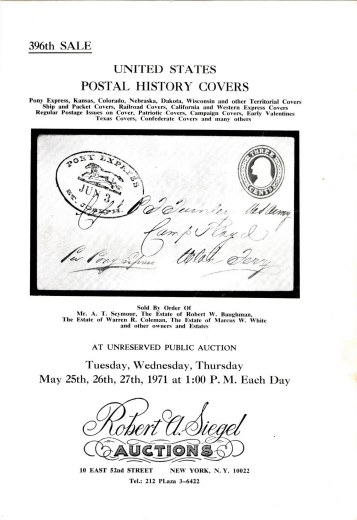 396th SALE
UNITED STATES
POSTAL HISTORY COVERS
Pony Express, Kansas, Colorado, Nebraska, Dakota, Wisconsin and other Territorial Covers
Ship and Packet Covers, Railroad Covers, California and Western Express Covers
Regular Postage Issues on Cover, Patriotic Covers, Campaign Covers, Early Valentines
Texas Covers, Confederate Covers and many others
PONY EXPRESS
JUN 3
ST. Joseph
THREE
CENTS
Camp Floyd
Utah Terry
Sold By Order Of
Mr. A. T. Seymour, The Estate of Robert W. Baughman,
The Estate of Warren R. Coleman, The Estate of Marcus W. White
and other owners and Estates
AT UNRESERVED PUBLIC AUCTION
Tuesday, Wednesday, Thursday
May 25th, 26th, 27th, 1971 at 1:00 P. M. Each Day
Robert A. Siegel
AUCTIONS
10 EAST 52nd STREET NEW YORK, N. Y. 10022
Tel.: 212 PLaza 3-6422